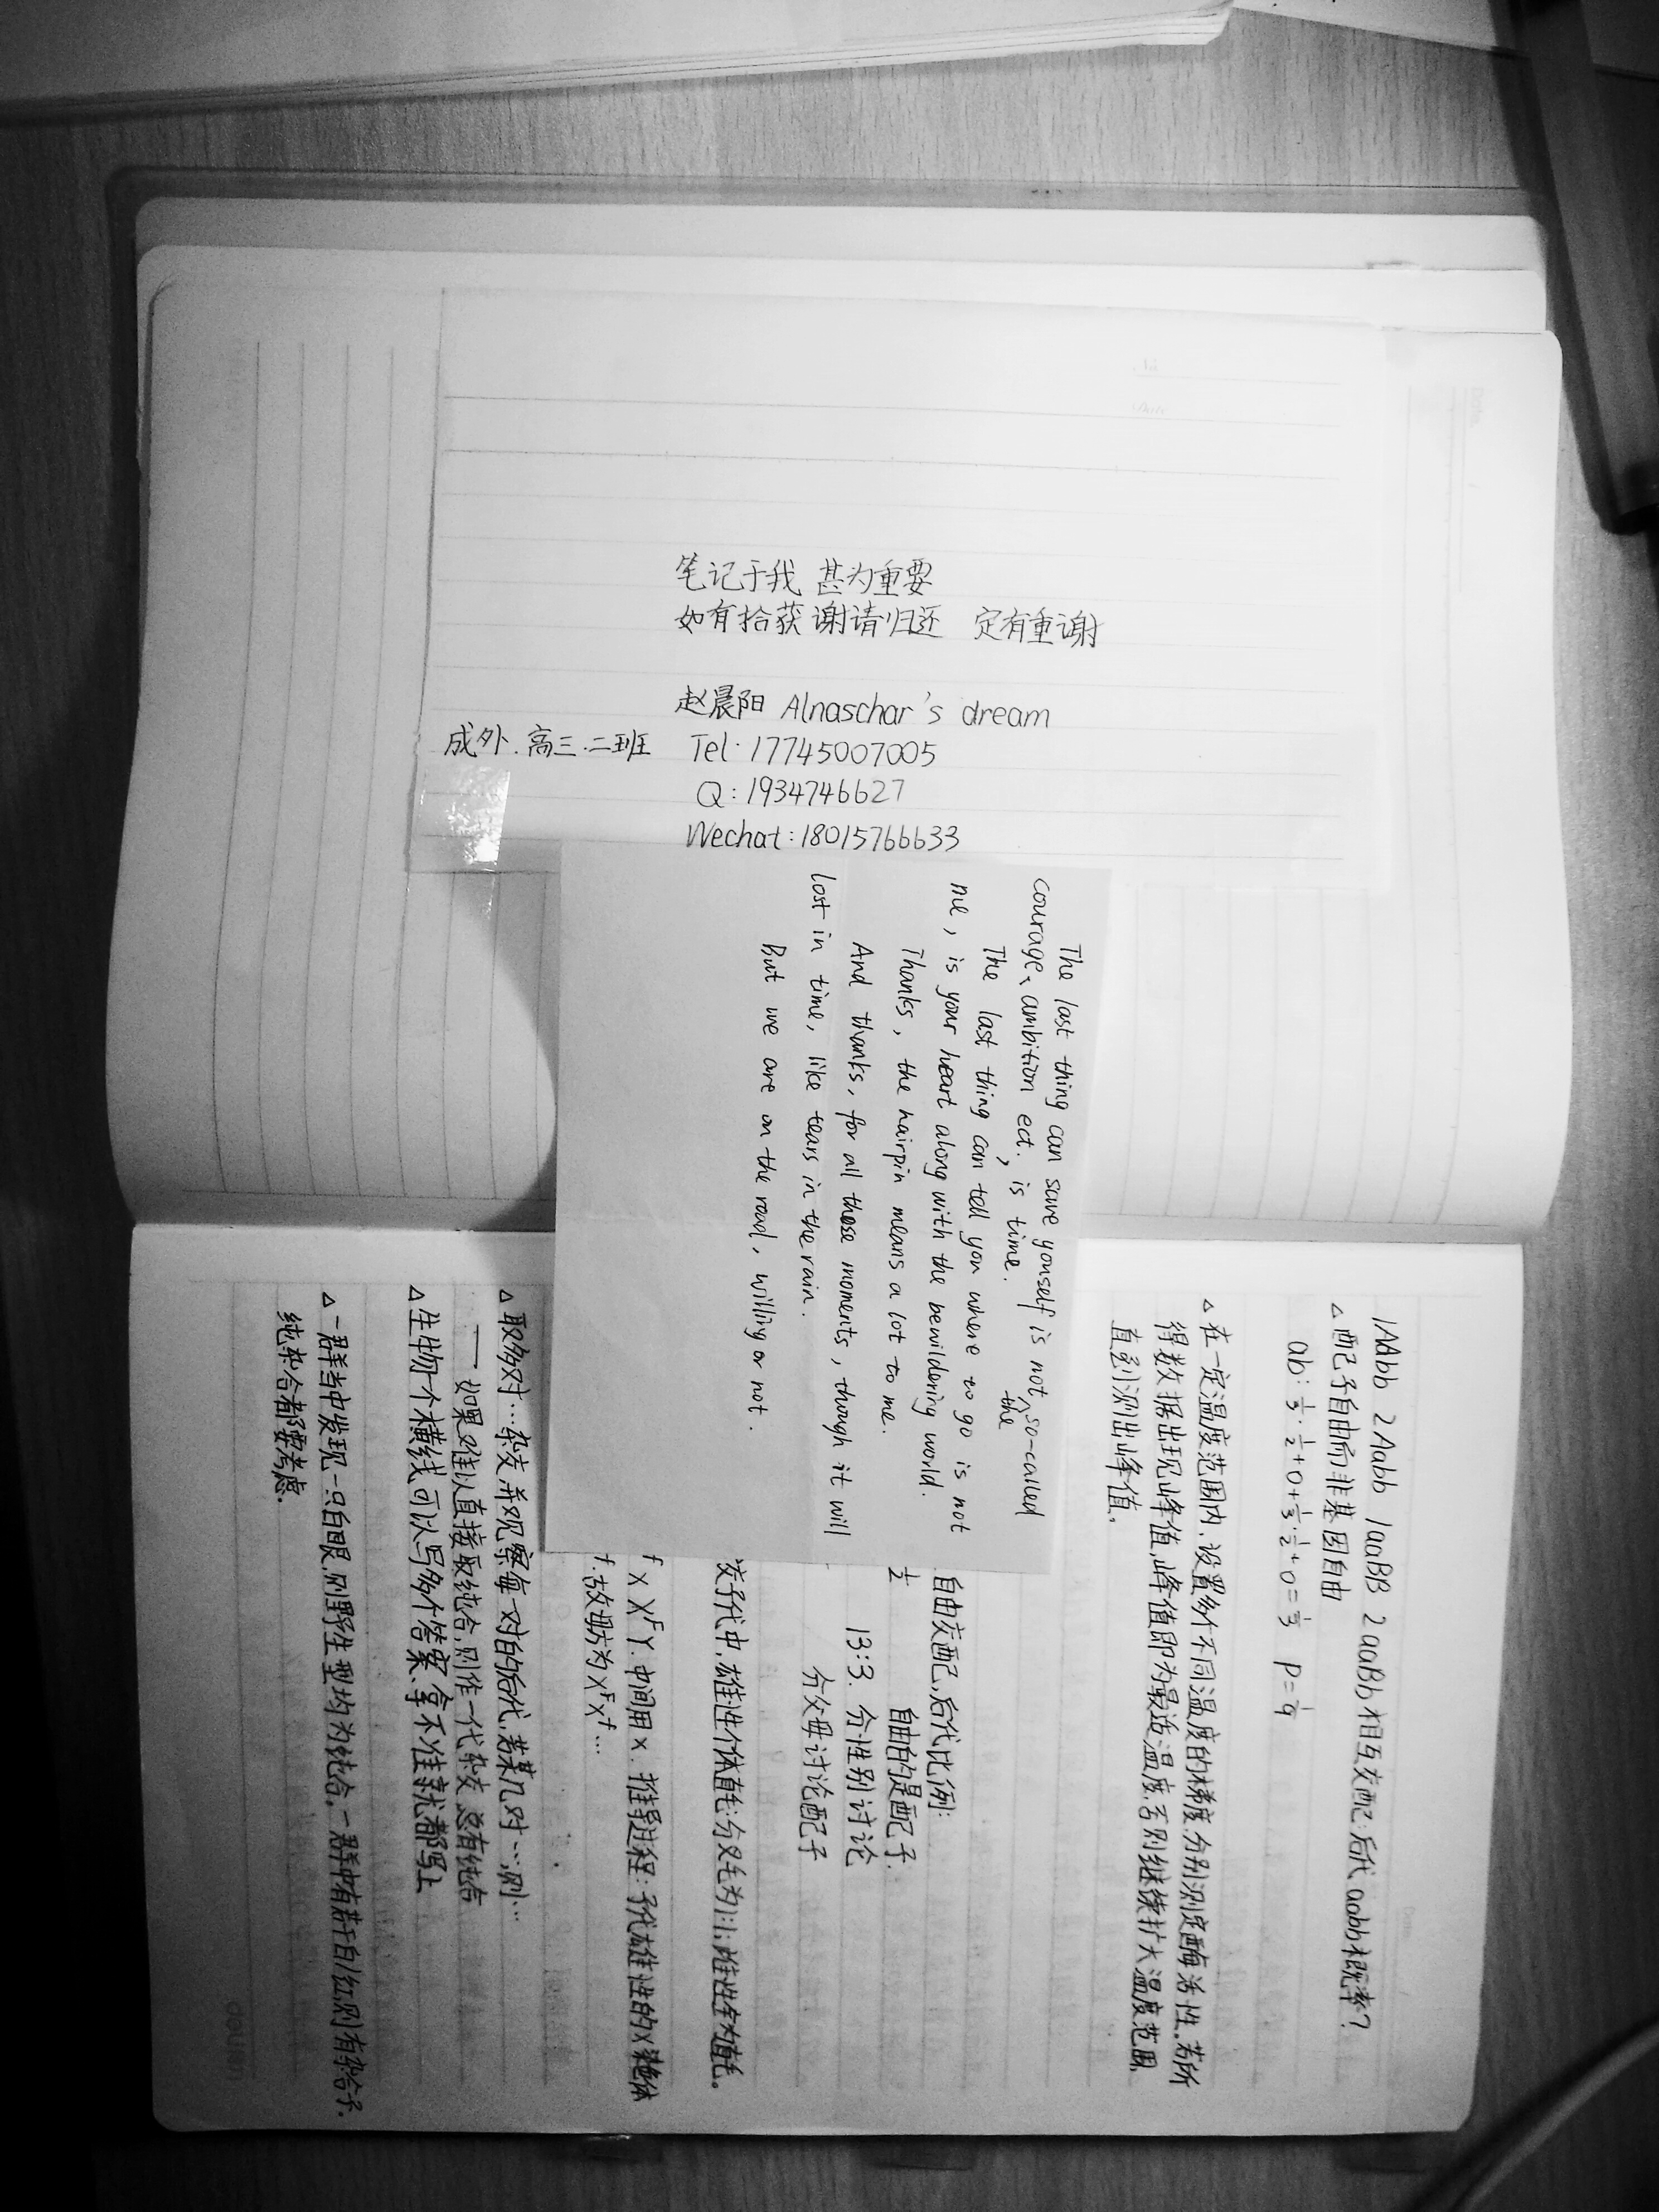 笔记于我 甚为重要
如有拾获 谢请归还 定有重谢
赵晨阳 Alnaschar's dream
成外.高三.二班 Tel:17745007005
Q:1934746627
Wechat:18015766633
The last thing can save yourself is not the so-called
courage、ambition ect., is time.
The last thing can tell you where to go is not
me, is your heart along with the bewildering world.
Thanks, the hairpin means a lot to me.
And thanks, for all those moments, though it will
lost in time, like tears in the rain.
But we are on the road, willing or not.
1AAbb 2Aabb 1aaBB 2aaBb相互交配:后代aabb概率?
△配子自由而非基因自由
ab: 1/3·1/2+0+1/3·1/2+0=1/3 P=1/9
△在一定温度范围内,设置多个不同温度的梯度,分别测定酶活性.若所
得数据出现峰值,峰值即为最适温度,否则继续扩大温度范围,
直到测出峰值.
自由交配,后代比例:
1/2 自由的是配子.
13:3. 分性别讨论
分父母讨论配子
发子代中,雄性个体直毛:分叉毛为1:1;雌性全为直毛.
f X X^F Y.中间用×.推导过程:子代雄性的X染色体
f.故母方为X^F X^f...
△取多对…杂交,并观察每一对的后代,若某几对…,则…
——如果难以直接取纯合,则作一代杂交 总有纯合
△生物一个横线可以写多个答案,拿不准就都写上
△一群当中发现一只白眼,则野生型均为纯合,一群中有若干白/红,则有杂合子.
纯杂合都要考虑.